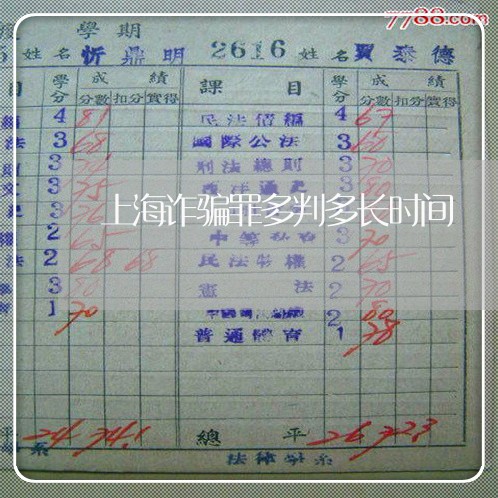 7788.com
學期
5 姓名 忻鼎明 2616 姓名 賈泰德
目 學分 成績 課目 學分 成績
分數 扣分 實得 分數 扣分 實得
4 81 民法債編 4 67
法 3 68 國際公法 3 60
3 刑法總則 3 70
3 75 3 80
3 76 3
上海诈骗罪多判多长时间
2 65 3 70
法 2 68 68 民法物權 2 65
3 80 憲法 2 70
1 70 2 80
普通體育 1 78
平 24 74.1 總平 26 72.3
系 法律學系